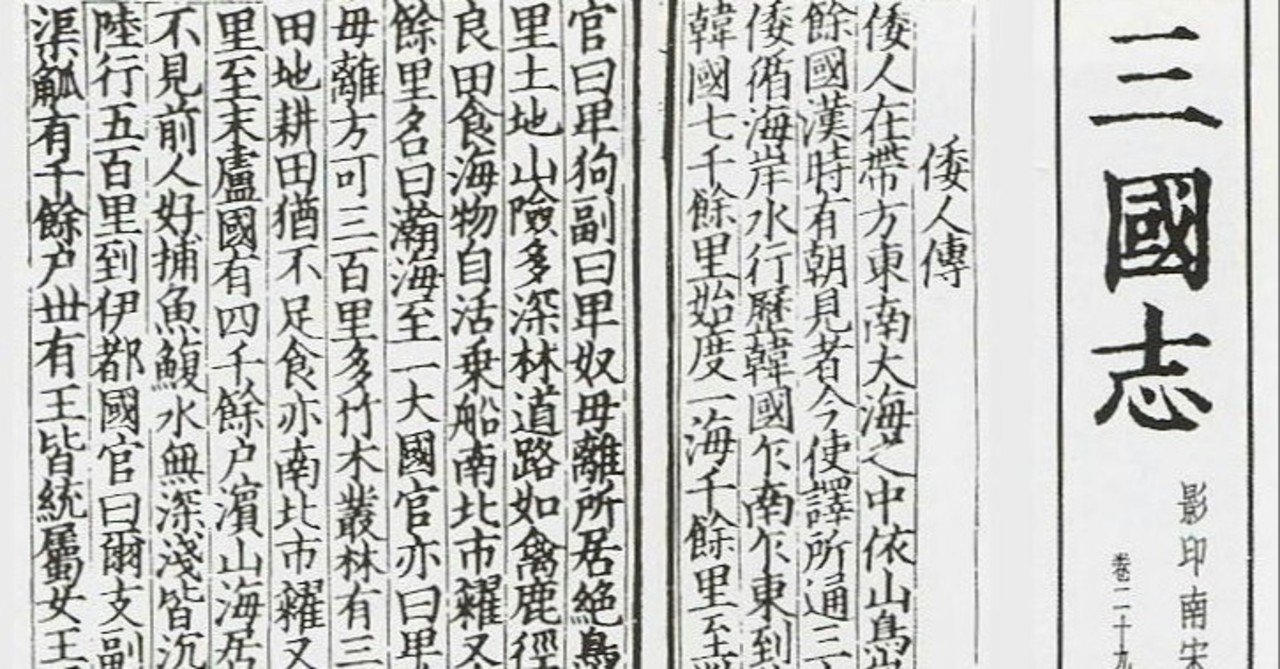 三國志
影印南宋
卷二十九
倭人傳
倭人在帶方東南大海之中依山島
餘國漢時有朝見者今使譯所通三
倭循海岸水行歷韓國乍南乍東到
韓國七千餘里始度一海千餘里至
官曰卑狗副曰卑奴毋離所居絶島
里土地山險多深林道路如禽鹿徑
良田食海物自活乗船南北市糴又
餘里名曰瀚海至一大國官亦曰卑
毋離方可三百里多竹木叢林有三
田地耕田猶不足食亦南北市糴又
里至末盧國有四千餘戸濱山海居
不見前人好捕魚鰒水無深淺皆沉
陸行五百里到伊都國官曰爾支副
渠觚有千餘戸丗有王皆統屬女王